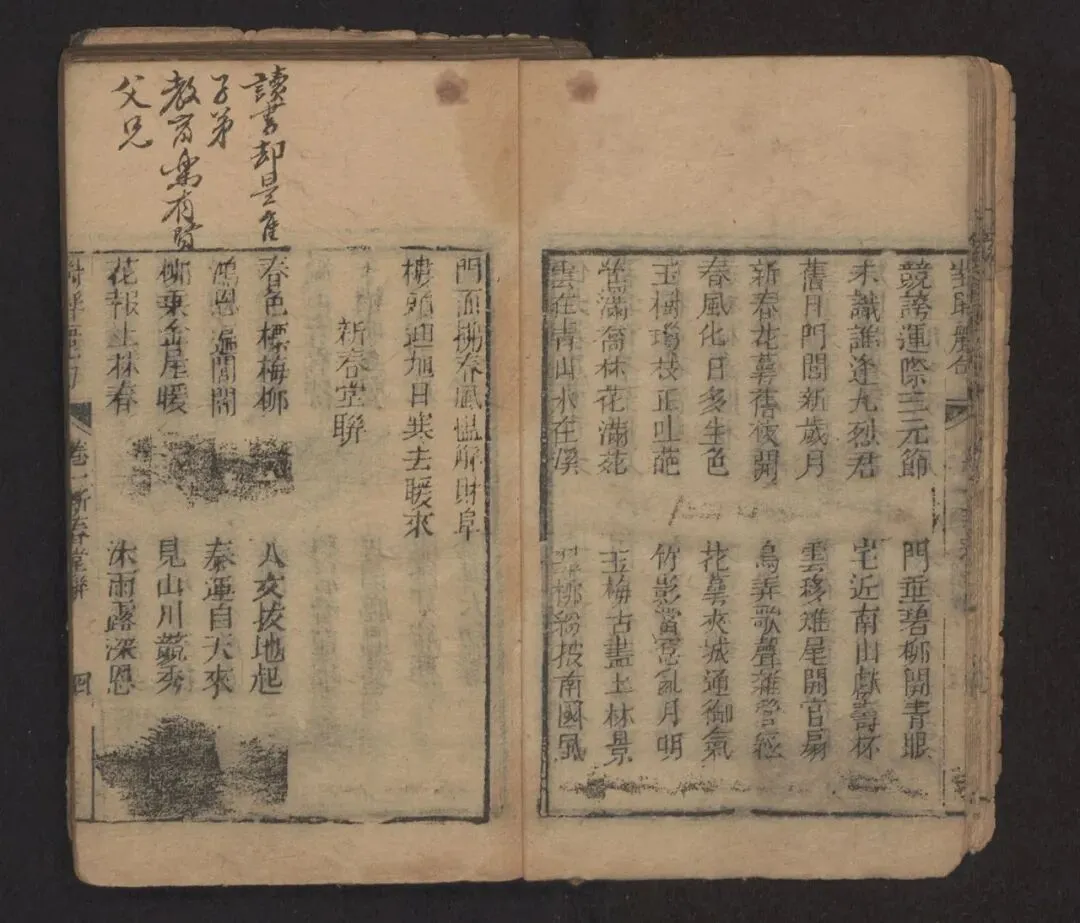 競誇運際三元節
門垂碧柳開青眼
未識誰逢九烈君
宅近南山獻壽杯
舊月門閭新歲月
雲移雉尾開官扇
新春花萼舊夜開
鳥弄歌聲雜管絃
春風化日多生色
花萼夾城通御氣
玉樹瓊枝正吐葩
竹影當窓亂月明
鶯滿喬林花滿苑
玉梅古畫上林景
雲在青山水在溪
柳紛披南國風
讀書却是隹
子弟
教育樂有賢
父兄
門面拂春風慍解財阜
樓頭迎旭日寒去暖來
新春堂聯
春色標梅柳
人文拔地起
鴻恩遍閭閻
泰運自天來
柳東屋暖
見山川競秀
花報上林春
沐雨露深恩
卷一新春堂聯
四